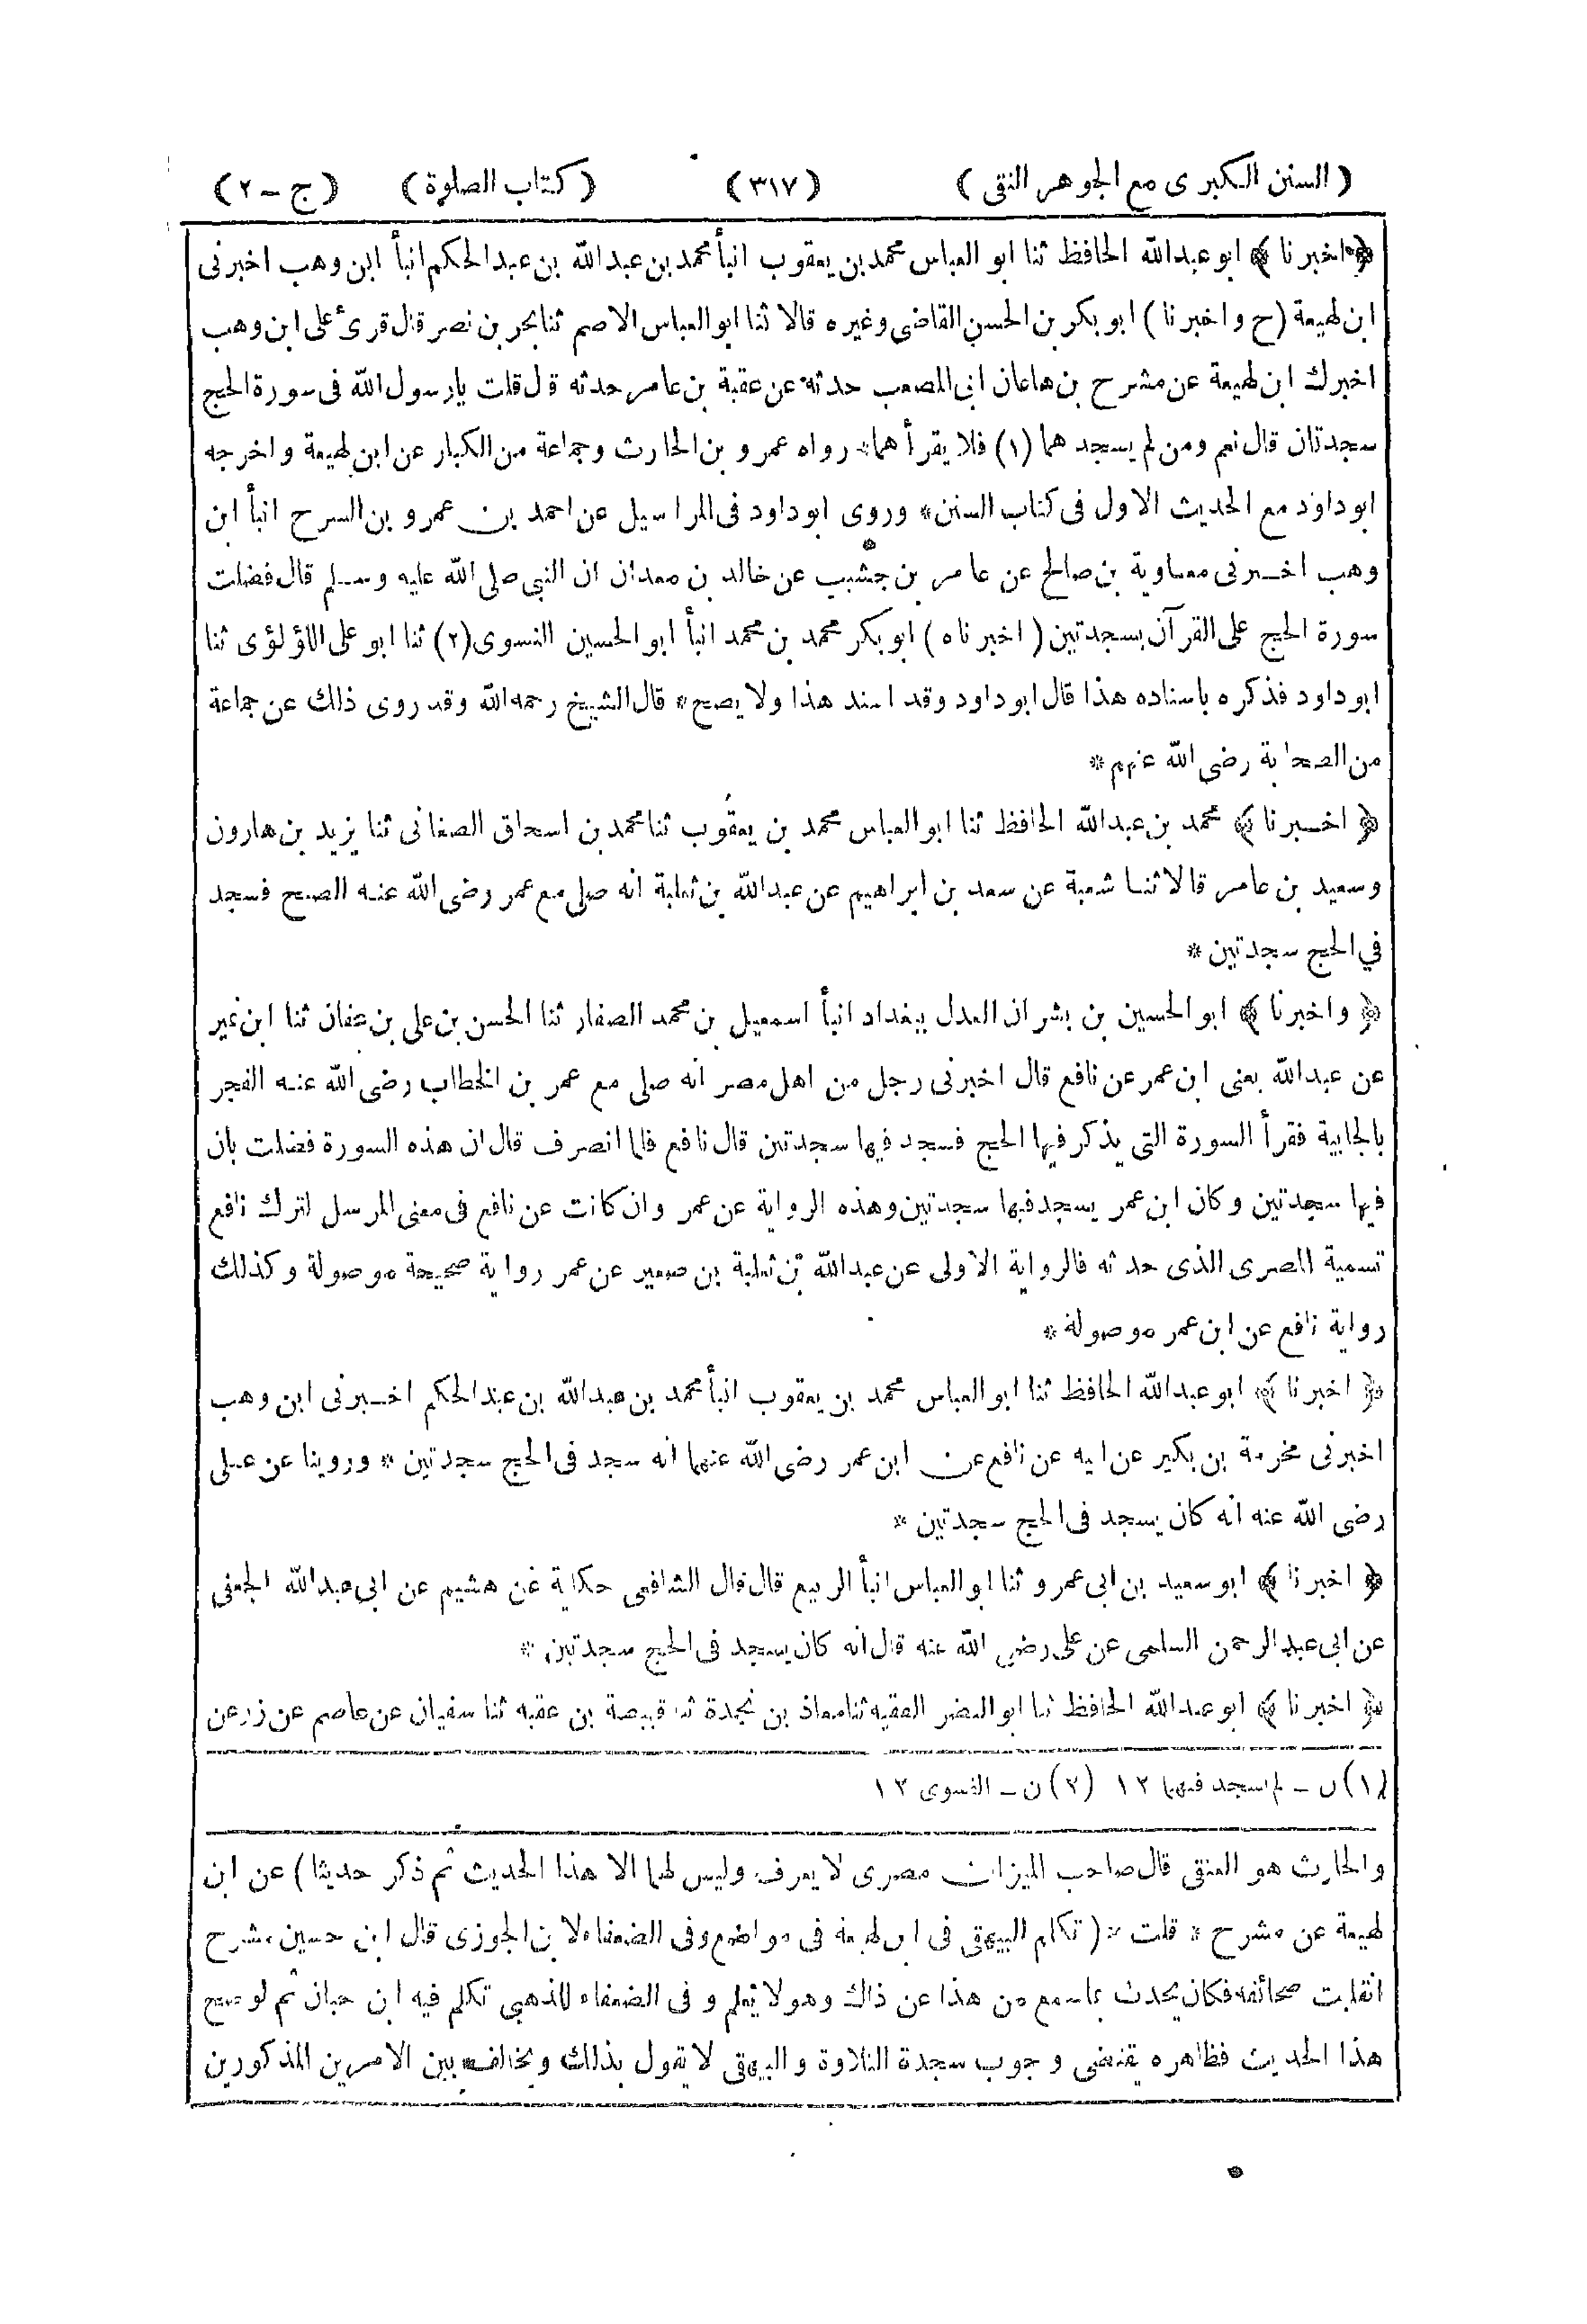 (السنن الكبرى مع الجوهر النقى) (٣١٧) (كتاب الصلوة) (ج - ٢)
﴿اخبرنا﴾ ابو عبدالله الحافظ ثنا ابو العباس محمد بن يعقوب انبأ محمد بن عبدالله بن عبدالحكم انبأ ابن وهب اخبرنى
ابن لهيعة (ح واخبرنا) ابو بكر بن الحسن القاضى وغيره قالا ثنا ابو العباس الاصم ثنا بحر بن نصر قال قرئ على ابن وهب
اخبرك ابن لهيعة عن مشرح بن هاعان ابى المصعب حدثه عن عقبة بن عامر حدثه قال قلت يا رسول الله فى سورة الحج
سجدتان قال نعم ومن لم يسجدهما (١) فلا يقرأهما * رواه عمرو بن الحارث وجماعة من الكبار عن ابن لهيعة واخرجه
ابو داود مع الحديث الاول فى كتاب السنن * وروى ابو داود فى المراسيل عن احمد بن عمرو بن السرح انبأ ابن
وهب اخبرنى معاوية بن صالح عن عامر بن جشيب عن خالد بن معدان ان النبى صلى الله عليه وسلم قال فضلت
سورة الحج على القرآن بسجدتين (اخبرناه) ابو بكر محمد بن محمد انبأ ابو الحسين النسوى (٢) ثنا ابو على اللؤلؤى ثنا
ابو داود فذكره باسناده هذا قال ابو داود وقد اسند هذا ولا يصح * قال الشيخ رحمه الله وقد روى ذلك عن جماعة
من الصحابة رضى الله عنهم *
﴿اخبرنا﴾ محمد بن عبدالله الحافظ ثنا ابو العباس محمد بن يعقوب ثنا محمد بن اسحاق الصغانى ثنا يزيد بن هارون
وسعيد بن عامر قالا ثنا شعبة عن سعد بن ابراهيم عن عبدالله بن ثعلبة انه صلى مع عمر رضى الله عنه الصبح فسجد
في الحج سجدتين *
﴿واخبرنا﴾ ابو الحسين بن بشران العدل ببغداد انبأ اسمعيل بن محمد الصفار ثنا الحسن بن على بن عفان ثنا ابن نمير
عن عبدالله يعنى ابن عمر عن نافع قال اخبرنى رجل من اهل مصر انه صلى مع عمر بن الخطاب رضى الله عنه الفجر
بالجابية فقرأ السورة التى يذكر فيها الحج فسجد فيها سجدتين قال نافع فلما انصرف قال ان هذه السورة فضلت بان
فيها سجدتين وكان ابن عمر يسجد فيها سجدتين وهذه الرواية عن عمر وان كانت عن نافع فى معنى المرسل لترك نافع
تسمية المصرى الذى حدثه فالرواية الاولى عن عبدالله بن ثعلبة بن صعير عن عمر رواية صحيحة موصولة وكذلك
رواية نافع عن ابن عمر موصولة *
﴿اخبرنا﴾ ابو عبدالله الحافظ ثنا ابو العباس محمد بن يعقوب انبأ محمد بن عبدالله بن عبدالحكم اخبرنى ابن وهب
اخبرنى مخرمة بن بكير عن ابيه عن نافع عن ابن عمر رضى الله عنهما انه سجد فى الحج سجدتين * وروينا عن على
رضى الله عنه انه كان يسجد فى الحج سجدتين *
﴿اخبرنا﴾ ابو سعيد بن ابى عمرو ثنا ابو العباس انبأ الربيع قال قال الشافعى حكاية عن هشيم عن ابى عبدالله الجعفى
عن ابى عبد الرحمن السلمى عن على رضى الله عنه قال انه كان يسجد فى الحج سجدتين *
﴿اخبرنا﴾ ابو عبدالله الحافظ ثنا ابو النضر الفقيه ثنا معاذ بن نجدة ثنا قبيصة بن عقبه ثنا سفيان عن عاصم عن زر عن
(١) ن - لم يسجد فيهما ١٢ (٢) ن - الفسوى ١٢
والحارث هو العتقى قال صاحب الميزان مصرى لا يعرف وليس لهما الا هذا الحديث ثم ذكر حديثا) عن ابن
لهيعة عن مشرح * قلت * (تكلم البيهقى فى ابن لهيعة فى مواضع وفى الضعفاء لابن الجوزى قال ابن حسين مشرح
انقلبت صحائفه فكان يحدث بما سمع من هذا عن ذاك وهو لا يعلم و فى الضعفاء للذهبى تكلم فيه ابن حبان ثم لو صح
هذا الحديث فظاهره يقتضى وجوب سجدة التلاوة والبيهقى لا يقول بذلك ويخالف بين الامرين المذكورين